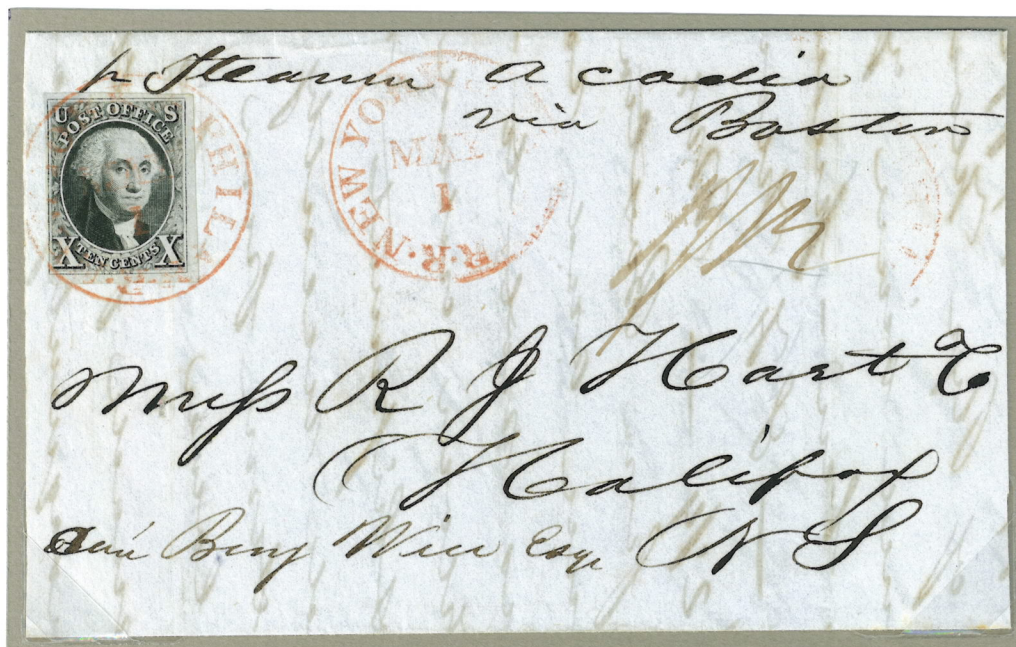 pr Steamer Acadia
via Boston
U S
POST OFFICE
X TEN CENTS X
PHIL
R.R.
NEW YORK
MAY
1
R.R.
Messrs R J Hart & Co
Halifax
N S
Benj Wier Esqr